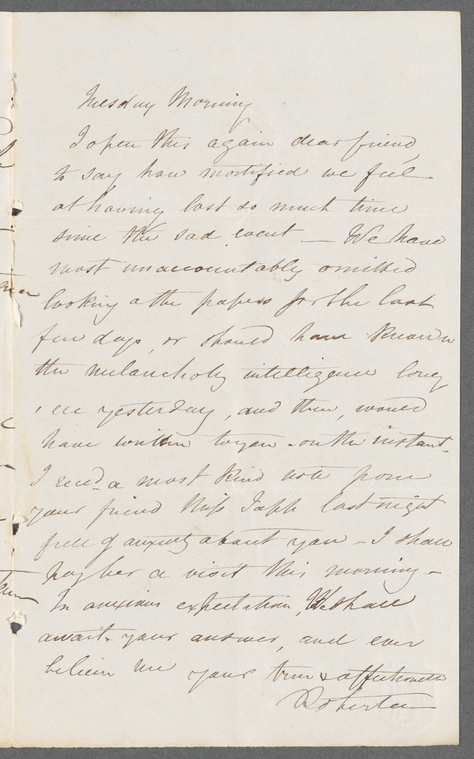 Tuesday Morning
I open this again dear friend
to say how mortified we feel
at having lost so much time
since the sad event — We have
most unaccountably omitted
looking at the papers for the last
few days, or should have known
the melancholy intelligence long
ere yesterday, and then, would
have written to you on the instant.
I recd a most kind note from
your friend Miss last night
full of anxiety about you — I shall
pay her a visit this morning —
In anxious expectation, We shall
await your answer, and ever
believe me your true & affectionate
Roberta